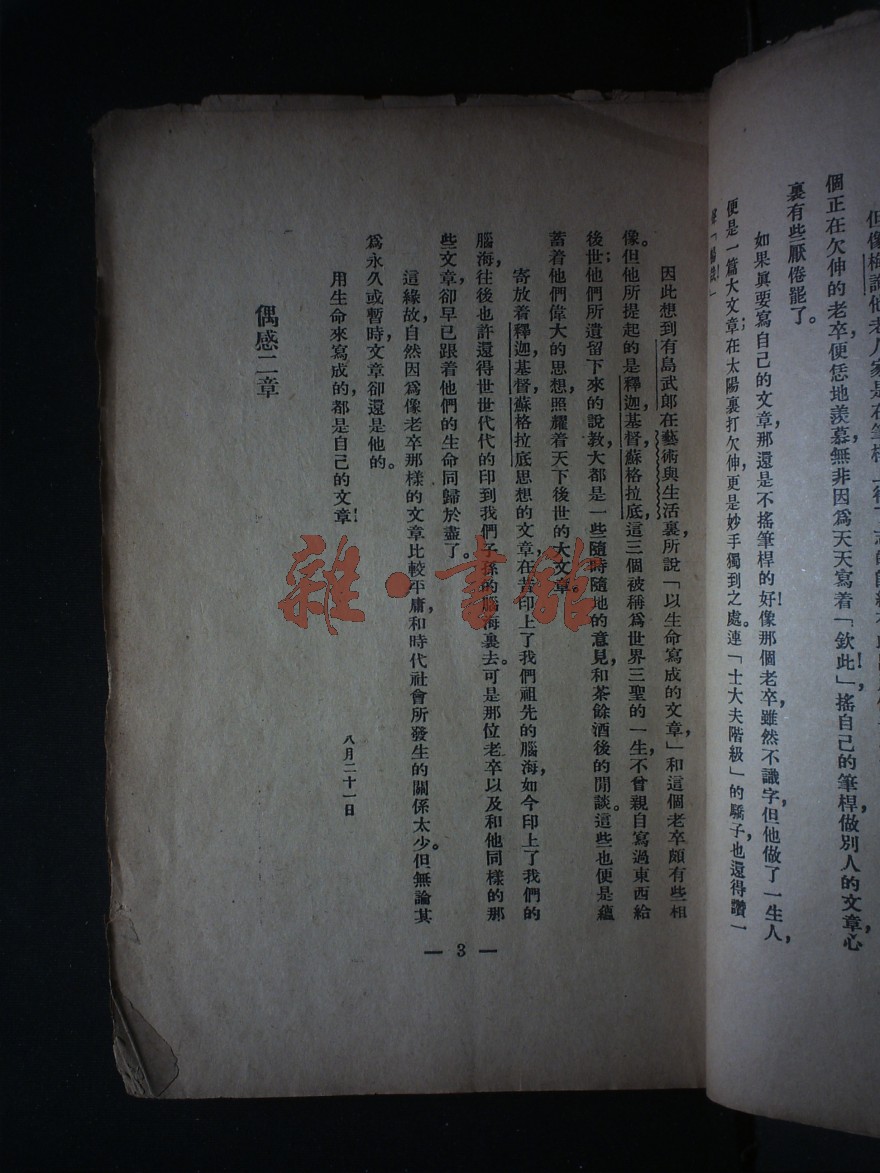 個正在欠伸的老卒便恁地羨慕無非因爲天天寫着「欽此」搖自己的筆桿，做別人的文章，心
裏有些厭倦罷了。
如果眞要寫自己的文章，那還是不搖筆桿的好！像那個老卒，雖然不識字，但他做了一生人，
便是一篇大文章；在太陽裏打欠伸，更是妙手獨到之處。連「士大夫階級」的驕子，也還得讚一
因此想到有島武郎在藝術與生活裏所說「以生命寫成的文章」，和這個老卒頗有些相
像。但他所提起的是釋迦，基督，蘇格拉底，這三個被稱爲世界三聖的一生，不曾親自寫過東西給
後世；他們所遺留下來的說教，大都是一些隨時隨地的意見，和茶餘酒後的閒談。這些也便是蘊
蓄着他們偉大的思想，照耀着天下後世的大文章。
寄放着釋迦，基督，蘇格拉底思想的文章，在昔印上了我們祖先的腦海，如今印上了我們的
腦海，往後也許還得世世代代的印到我們子孫的腦海裏去。可是那位老卒以及和他同樣的那
些文章，卻早已跟着他們的生命同歸於盡了。
這緣故，自然因爲像老卒那樣的文章比較平庸，和時代社會所發生的關係太少。但無論其
爲永久或暫時，文章卻還是他的。
用生命來寫成的，都是自己的文章！
八月二十一日
偶感二章
— 3 —
雜·書館